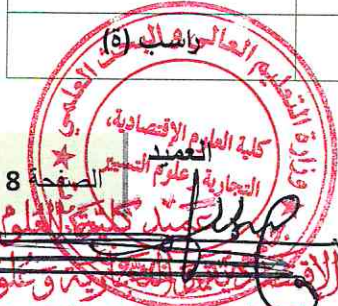 راسب (ة)
وزارة التعليم العالي والبحث العلمي
كلية العلوم الإقتصادية،
التجارية وعلوم التسيير
العميد
الصفحة 8
عميد كلية العلوم